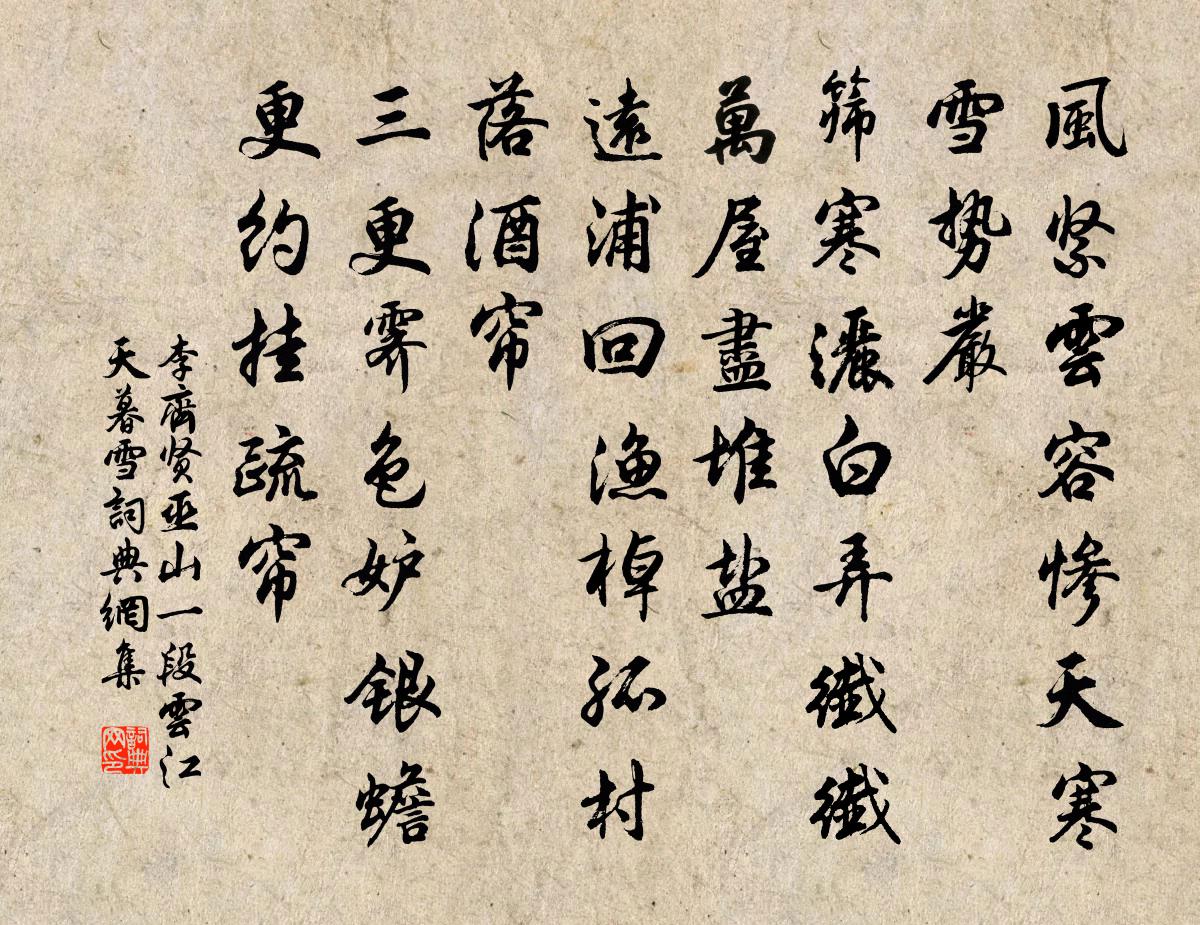 風紧雲容惨天寒
雪勢嚴
筛寒灑白弄纖纖
萬屋盡堆盐
遠浦回漁棹孤村
落酒帘
三更霽色妒銀蟾
更約挂疏帘
李齊贤巫山一段雲江
天暮雪詞典網集
詞典
网印